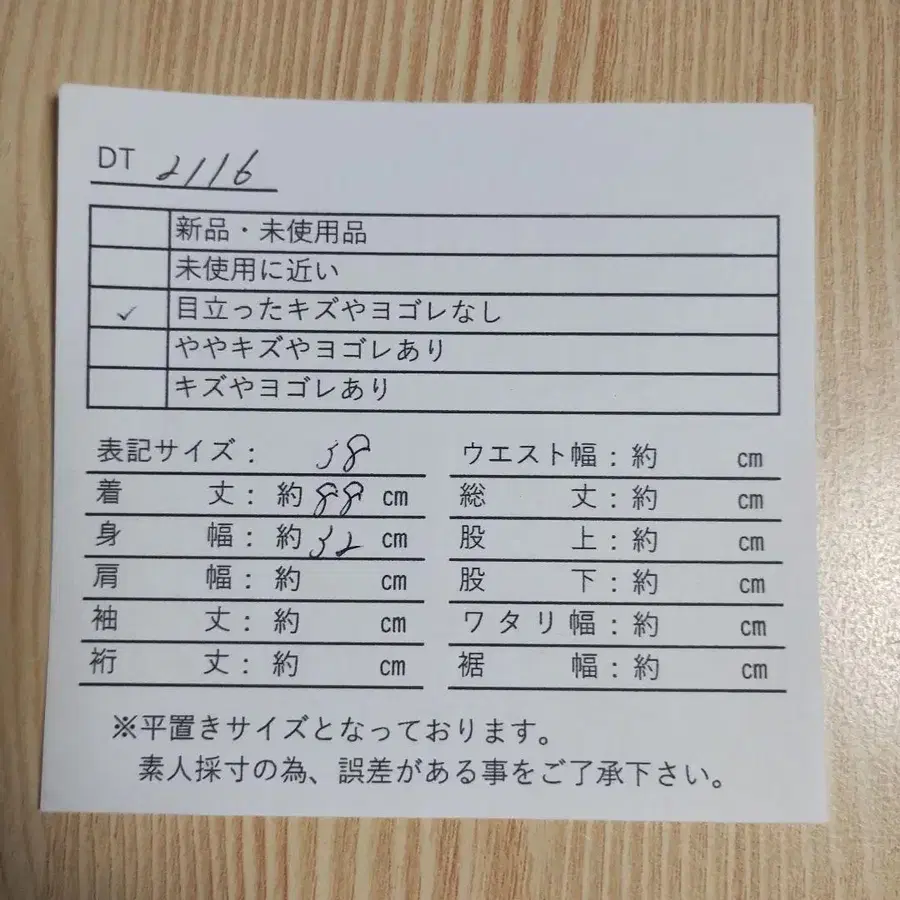 DT 2116
新品・未使用品
未使用に近い
✓ 目立ったキズやヨゴレなし
ややキズやヨゴレあり
キズやヨゴレあり
表記サイズ: 38
着丈:約88cm
身幅:約32cm
肩幅:約 cm
袖丈:約 cm
裄丈:約 cm
ウエスト幅:約 cm
総丈:約 cm
股上:約 cm
股下:約 cm
ワタリ幅:約 cm
裾幅:約 cm
※平置きサイズとなっております。
素人採寸の為、誤差がある事をご了承下さい。